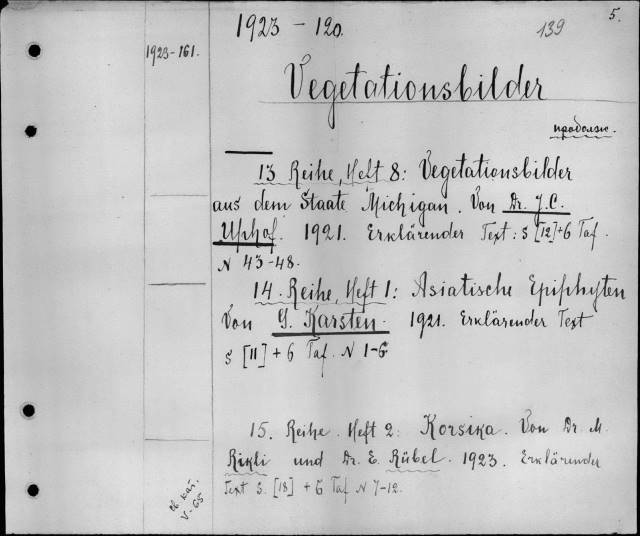 1923 - 120.
139
5.
1923-161.
Vegetationsbilder
продолж.
13 Reihe, Heft 8: Vegetationsbilder
aus dem Staate Michigan. Von Dr. J.C.
Uphof. 1921. Erklärender Text: S [12]+6 Taf.
N 43-48.
14. Reihe, Heft 1: Asiatische Epiphyten
Von G. Karsten. 1921. Erklärender Text
S [11] + 6 Taf. N 1-6
15. Reihe. Heft 2: Korsika. Von Dr. M.
Rikli und Dr. E. Rübel. 1923. Erklärender
Text S. [18] + 6 Taf N 7-12.
кат.
V-65